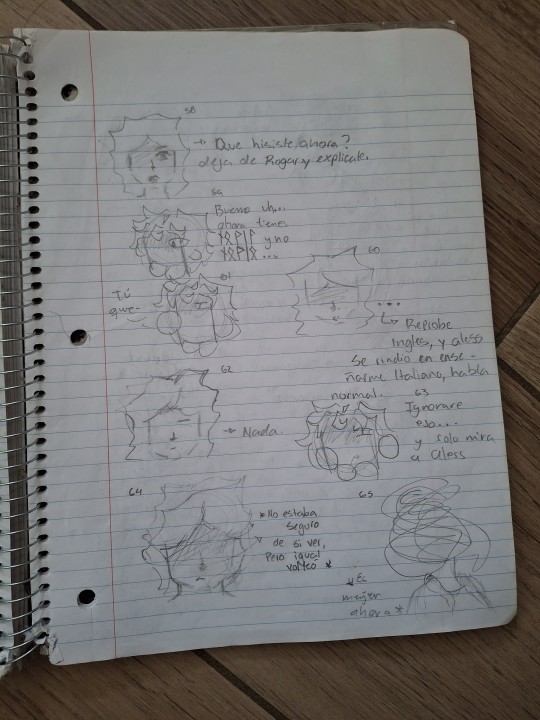 58
→ Que hisiste ahora?
deja de Rogar y explicate.
59
Bueno uh...
ahora tienes
y no
...
60
...
↳ Reprobe
Ingles, y aless
se rindio en ense-
ñarme Italiano, habla
normal.
61
Tú
que-
62
→ Nada.
63
Ignorare
eso....
y solo mira
a aless
64
*No estaba
seguro
de si ver,
Pero igual
volteo *
65
Es
mujer
ahora *